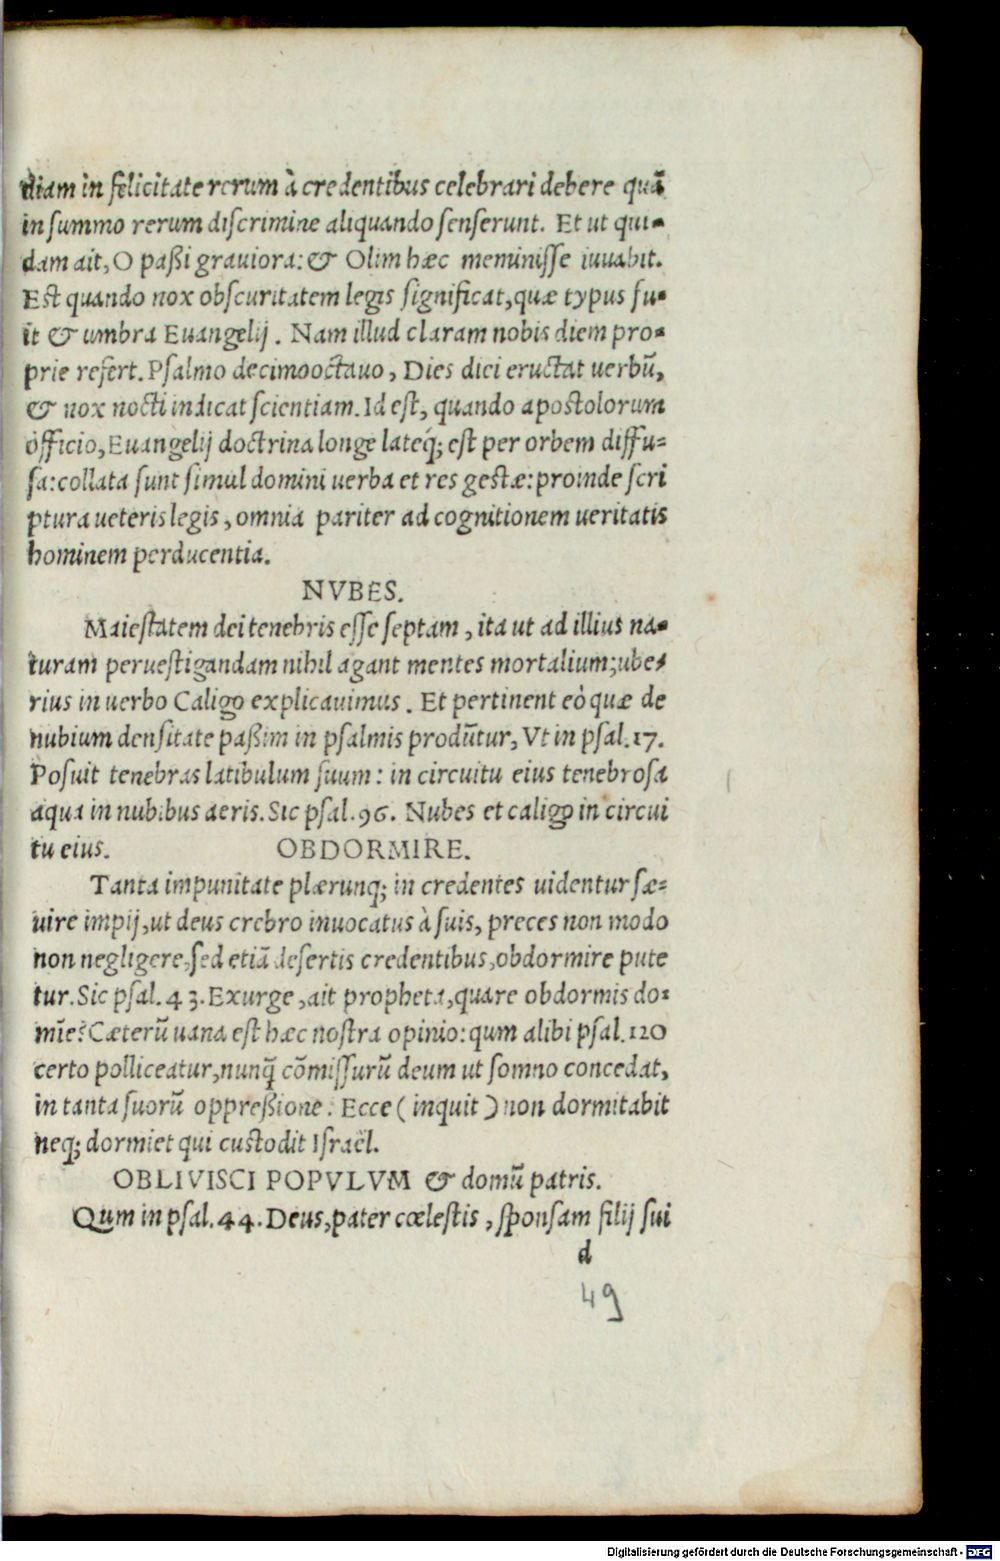 diam in felicitate rerum à credentibus celebrari debere quã
in summo rerum discrimine aliquando senserunt. Et ut qui-
dam ait, O paßi grauiora: & Olim hæc meminisse iuuabit.
Est quando nox obscuritatem legis significat, quæ typus fu-
it & umbra Euangelij. Nam illud claram nobis diem pro-
prie refert. Psalmo decimooctauo, Dies diei eructat uerbũ,
& nox nocti indicat scientiam. Id est, quando apostolorum
officio, Euangelij doctrina longe lateq́; est per orbem diffu-
sa: collata sunt simul domini uerba et res gestæ: proinde scri
ptura ueteris legis, omnia pariter ad cognitionem ueritatis
hominem perducentia.
NVBES.
Maiestatem dei tenebris esse septam, ita ut ad illius na-
turam peruestigandam nihil agant mentes mortalium; ube-
rius in uerbo Caligo explicauimus. Et pertinent eò quæ de
nubium densitate paßim in psalmis produ̅tur, Vt in psal. 17.
Posuit tenebras latibulum suum: in circuitu eius tenebrosa
aqua in nubibus aeris. Sic psal. 96. Nubes et caligo in circui
tu eius. OBDORMIRE.
Tanta impunitate plærunq; in credentes uidentur sæ-
uire impij, ut deus crebro inuocatus à suis, preces non modo
non negligere, sed etiã desertis credentibus, obdormire pute
tur. Sic psal. 43. Exurge, ait propheta, quare obdormis do-
mĩe? Cæterũ uana est hæc nostra opinio: qum alibi psal. 120
certo polliceatur, nunq̃ cõmissurũ deum ut somno concedat,
in tanta suorũ oppreßione: Ecce (inquit) non dormitabit
neq; dormiet qui custodit Israël.
OBLIVISCI POPVLVM & domũ patris.
Qum in psal. 44. Deus, pater cœlestis, sponsam filij sui
d
49
Digitalisierung gefördert durch die Deutsche Forschungsgemeinschaft - DFG